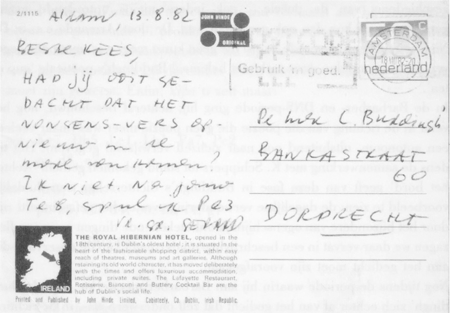 2/1115
A'dam, 13.8.82
BESTE KEES,
HAD jij OOIT GE-
DACHT DAT HET
NONSENS-VERS OP-
NIEUW in de
mode zou komen?
Ik niet. Na jouw
Te8, speel ik Pe3
Vr. gr. GERARD
JOHN HINDE
ORIGINAL
POSTCODE
Gebruik 'm goed.
AMSTERDAM
nederland
De heer C. Buddingh'
BANKASTRAAT
60
DORDRECHT
IRELAND
THE ROYAL HIBERNIAN HOTEL, opened in the
18th century, is Dublin's oldest hotel; it is situated in the
heart of the fashionable shopping district, within easy
reach of theatres, museums and art galleries. Although
retaining its old world character, it has moved deliberately
with the times and offers luxurious accommodation,
including private suites. The Lafayette Restaurant,
Rotisserie, and Buttery Cocktail Bar are the
hub of Dublin's social life.
Printed and Published by John Hinde Limited, Cabinteely, Co. Dublin, Irish Republic.